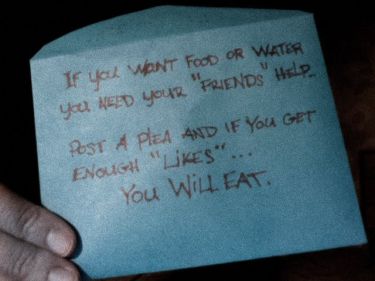 IF YOU WANT FOOD OR WATER
YOU NEED YOUR "FRIENDS" HELP..
POST A PLEA AND IF YOU GET
ENOUGH "LIKES"...
YOU WILL EAT.